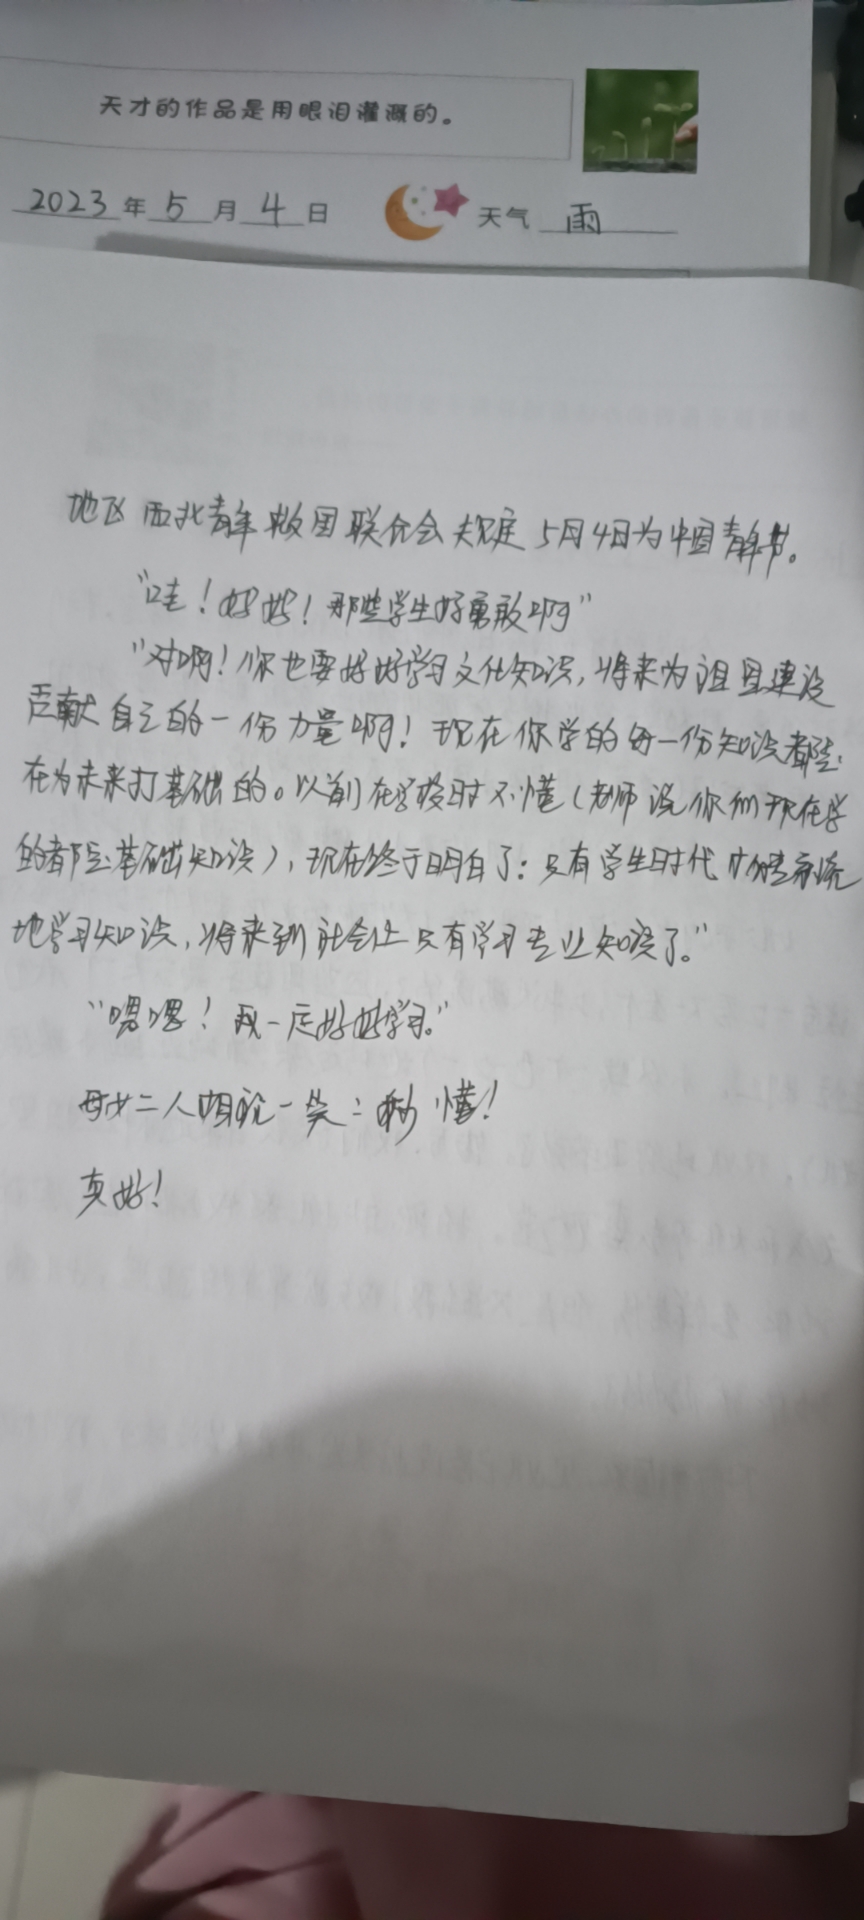 天才的作品是用眼泪灌溉的。
2023年5月4日 天气 雨
地区西北青年救国联合会规定5月4日为中国青年节。
“哇！妈妈！那些学生好勇敢啊”
“对啊！你也要好好学习文化知识，将来为祖国建设
贡献自己的一份力量啊！现在你学的每一份知识都是
在为未来打基础的。以前在学校时不懂（老师说你们现在学
的都是基础知识），现在终于明白了：只有学生时代才能系统
地学习知识，将来到社会上只有学习专业知识了。”
“嗯嗯！我一定好好学习。”
母女二人相视一笑：秒懂！
真好！